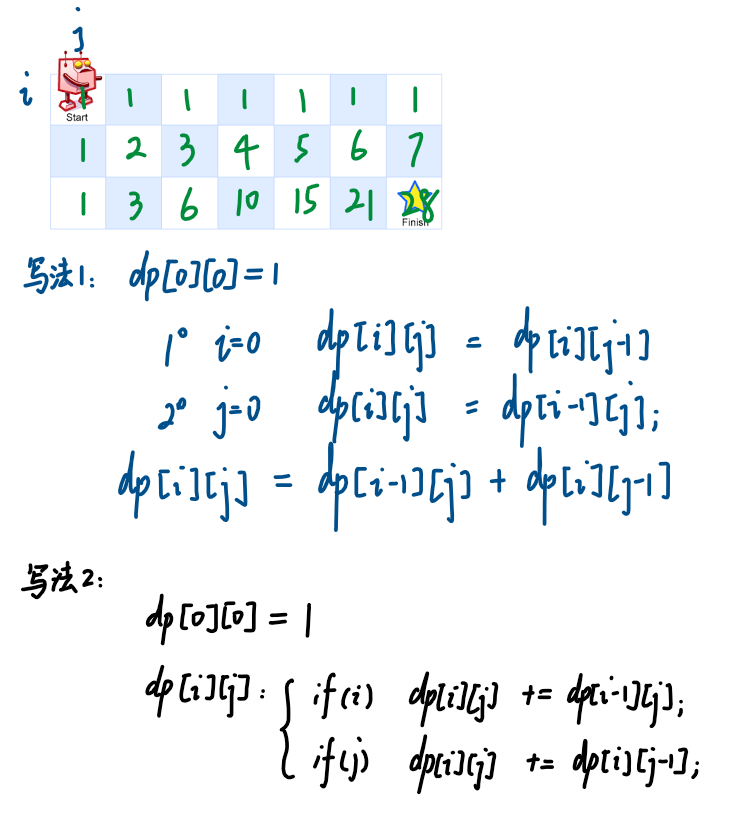 j
i 1 1 1 1 1 1 1
Start
1 2 3 4 5 6 7
1 3 6 10 15 21 28
Finish
写法1: dp[0][0]=1
1° i=0 dp[i][j] = dp[i][j-1]
2° j=0 dp[i][j] = dp[i-1][j];
dp[i][j] = dp[i-1][j] + dp[i][j-1]
写法2:
dp[0][0] = 1
dp[i][j]: { if(i) dp[i][j] += dp[i-1][j];
if(j) dp[i][j] += dp[i][j-1];